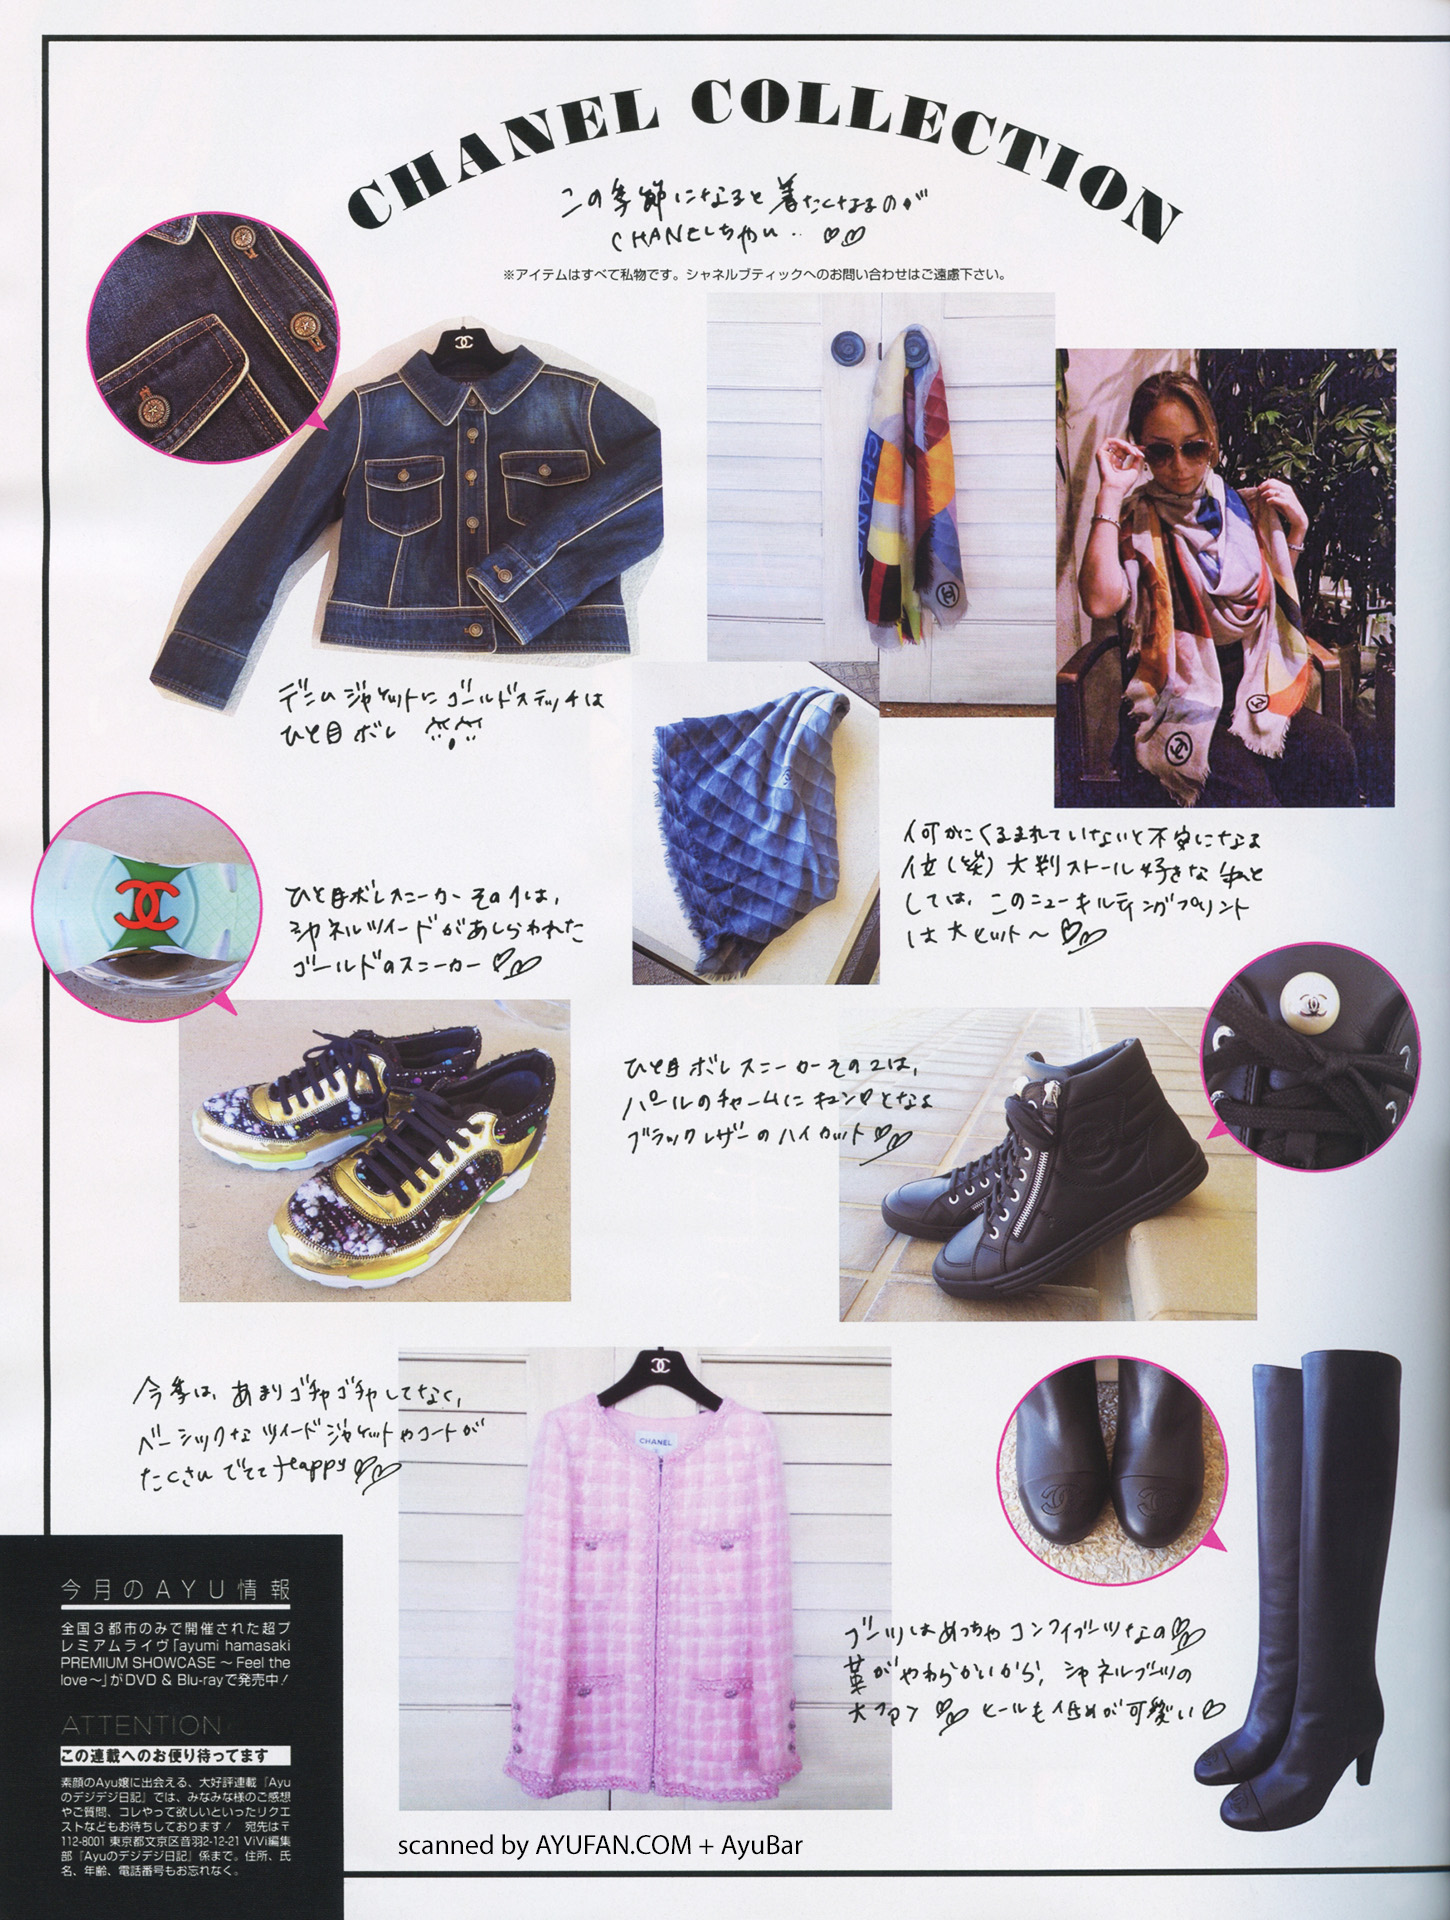 CHANEL COLLECTION
この季節になると着たくなるのが
CHANELちゃん‥♡♡
※アイテムはすべて私物です。シャネルブティックへのお問い合わせはご遠慮下さい。
デニムジャケットにゴールドステッチは
ひと目ボレ
CHANEL
何かにくるまれていないと不安になる
位(笑)大判ストール好きな私と
しては、このニューキルティングプリント
は大ヒット〜♡♡
ひと目ボレスニーカーその1は、
シャネルツイードがあしらわれた
ゴールドのスニーカー♡♡
ひと目ボレスニーカーその2は、
パールのチャームにキュン♡となる
ブラックレザーのハイカット♡♡
今季は、あまりゴチャゴチャしてなく、
ベーシックなツイードジャケットやコートが
たくさんでてて Happy♡♡
CHANEL
ブーツはめっちゃコンフィブーツなの♡♡
革がやわらかいから、シャネルブーツの
大ファン♡♡ ヒールも低めが可愛い♡
今月のAYU情報
全国3都市のみで開催された超プ
レミアムライヴ「ayumi hamasaki
PREMIUM SHOWCASE ～Feel the
love～」がDVD & Blu-rayで発売中！
ATTENTION
この連載へのお便り待ってます
素顔のAyu嬢に出会える、大好評連載『Ayu
のデジデジ日記』では、みなみな様のご感想
やご質問、コレやって欲しいといったリクエ
ストなどもお待ちしております！ 宛先は〒
112-8001 東京都文京区音羽2-12-21 ViVi編集
部『Ayuのデジデジ日記』係まで。住所、氏
名、年齢、電話番号もお忘れなく。
scanned by AYUFAN.COM + AyuBar